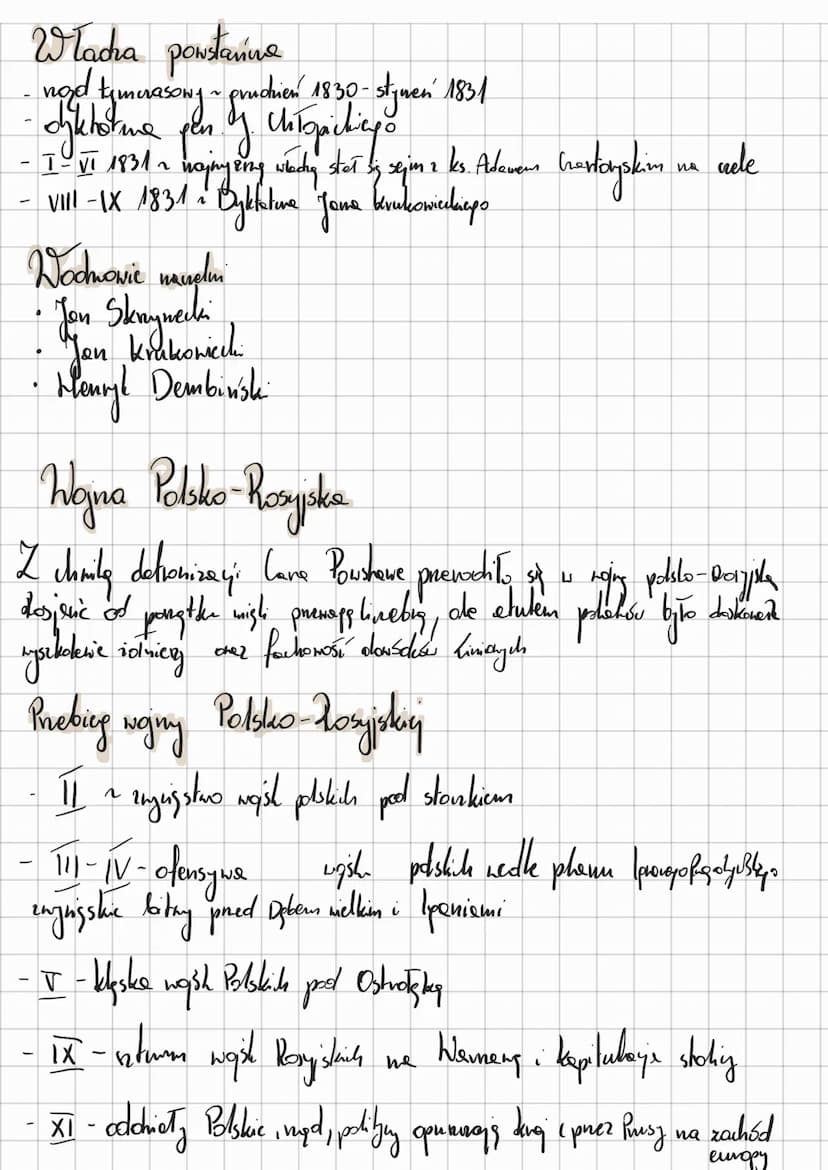 Władza powstańcza
- rząd tymczasowy ~ grudzień 1830 - styczeń 1831
- dyktatura gen. J. Chłopickiego
- I - VI 1831 ~ najwyższą władzą stał się sejm z ks. Adamem Czartoryskim na czele
- VIII - IX 1831 ~ Dyktatura Jana Krukowieckiego
Wodzowie naczelni
• Jan Skrzynecki
• Jan Krukowiecki
• Henryk Dembiński
Wojna Polsko-Rosyjska
Z chwilą detronizacji Cara Powstanie przerodziło się w wojnę polsko-Rosyjską
Rosjanie od początku mieli przewagę liczebną, ale atutem polaków było doskonałe
wyszkolenie żołnierzy oraz fachowość dowódców liniowych
Przebieg wojny Polsko-Rosyjskiej
- II ~ zwycięstwo wojsk polskich pod stoczkiem
- III - IV - ofensywa wojsk polskich wedle planu
zwycięskie bitwy pod Dębem wielkim i Iganiami
- V - klęska wojsk Polskich pod Ostrołęką
- IX - szturm wojsk Rosyjskich na Warszawę i kapitulacja stolicy
- XI - oddziały Polskie, rząd, politycy opuszczają kraj i przez Prusy na zachód
europy